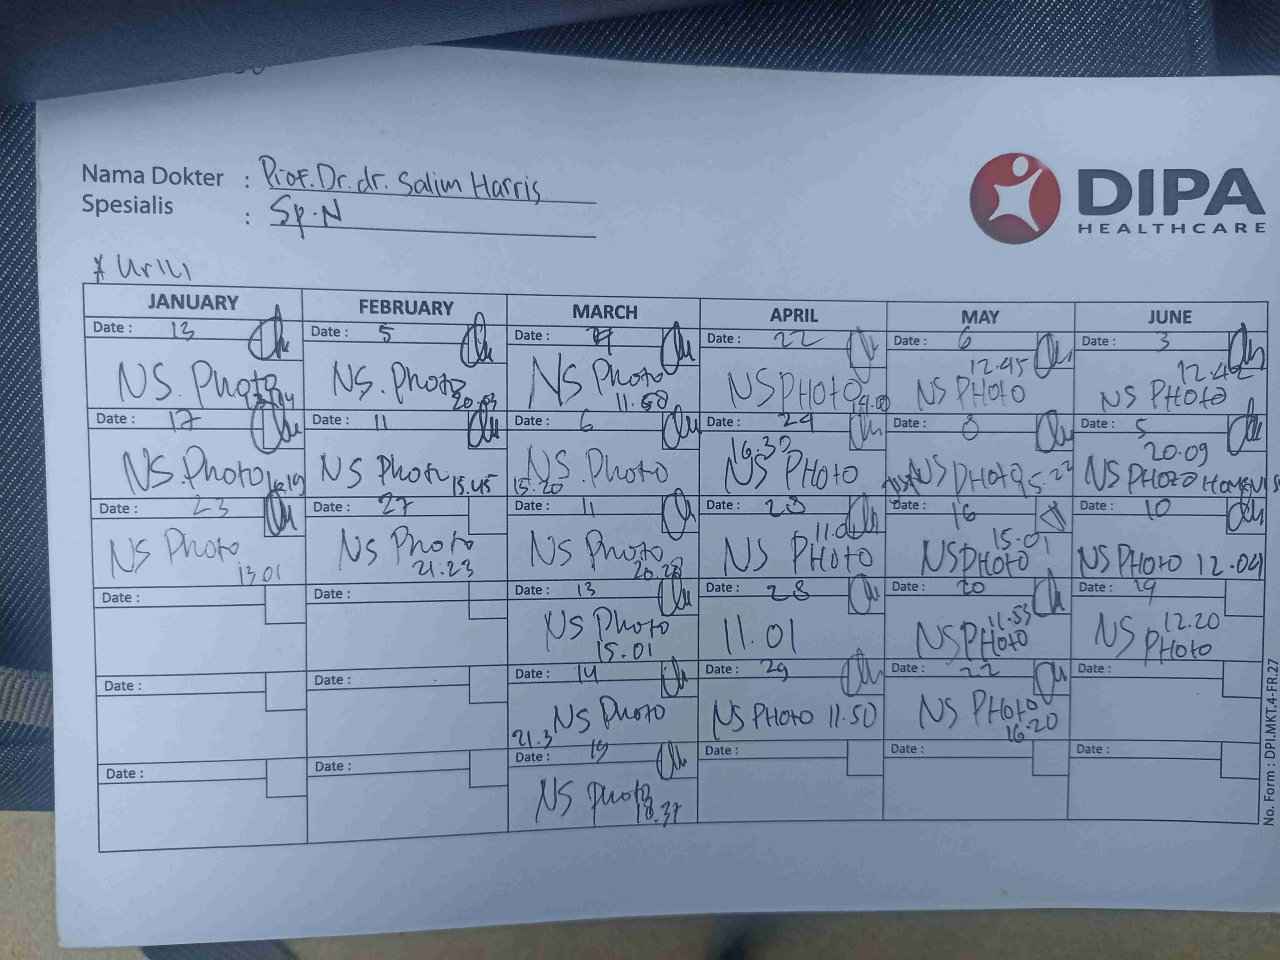 Nama Dokter : Prof. Dr. dr. Salim Harris
Spesialis : Sp.N
DIPA
HEALTHCARE
JANUARY FEBRUARY MARCH APRIL MAY JUNE
Date : 13 Date : 5 Date : Date : 22 Date : 6 Date : 3
12.45 12.42
NS. Photo NS. Photo NS Photo NS PHOTO NS PHOTO NS PHOTO
20.03 11.58
Date : 17 Date : 11 Date : 6 Date : 24 Date : 8 Date : 5
16.33 20.09
NS. Photo NS Photo 15.45 NS. Photo 15.20 NS PHOTO NS PHOTO NS PHOTO
Date : 23 Date : 27 Date : 11 Date : 28 Date : 16 Date : 10
15.01
NS Photo NS Photo NS Photo NS PHOTO NS PHOTO NS PHOTO 12.09
13.01 21.23 20.28
Date : Date : Date : 13 Date : 28 Date : 20 Date : 19
11.53 12.20
NS Photo 11.01 NS PHOTO NS PHOTO
15.01
Date : Date : Date : 14 Date : 29 Date : 22 Date :
NS Photo NS PHOTO 11.50 NS PHOTO
21.3 16.20
Date : Date : Date : 19 Date : Date : Date :
NS Photo
18.37
No. Form : DPI.MKT.4-FR.27